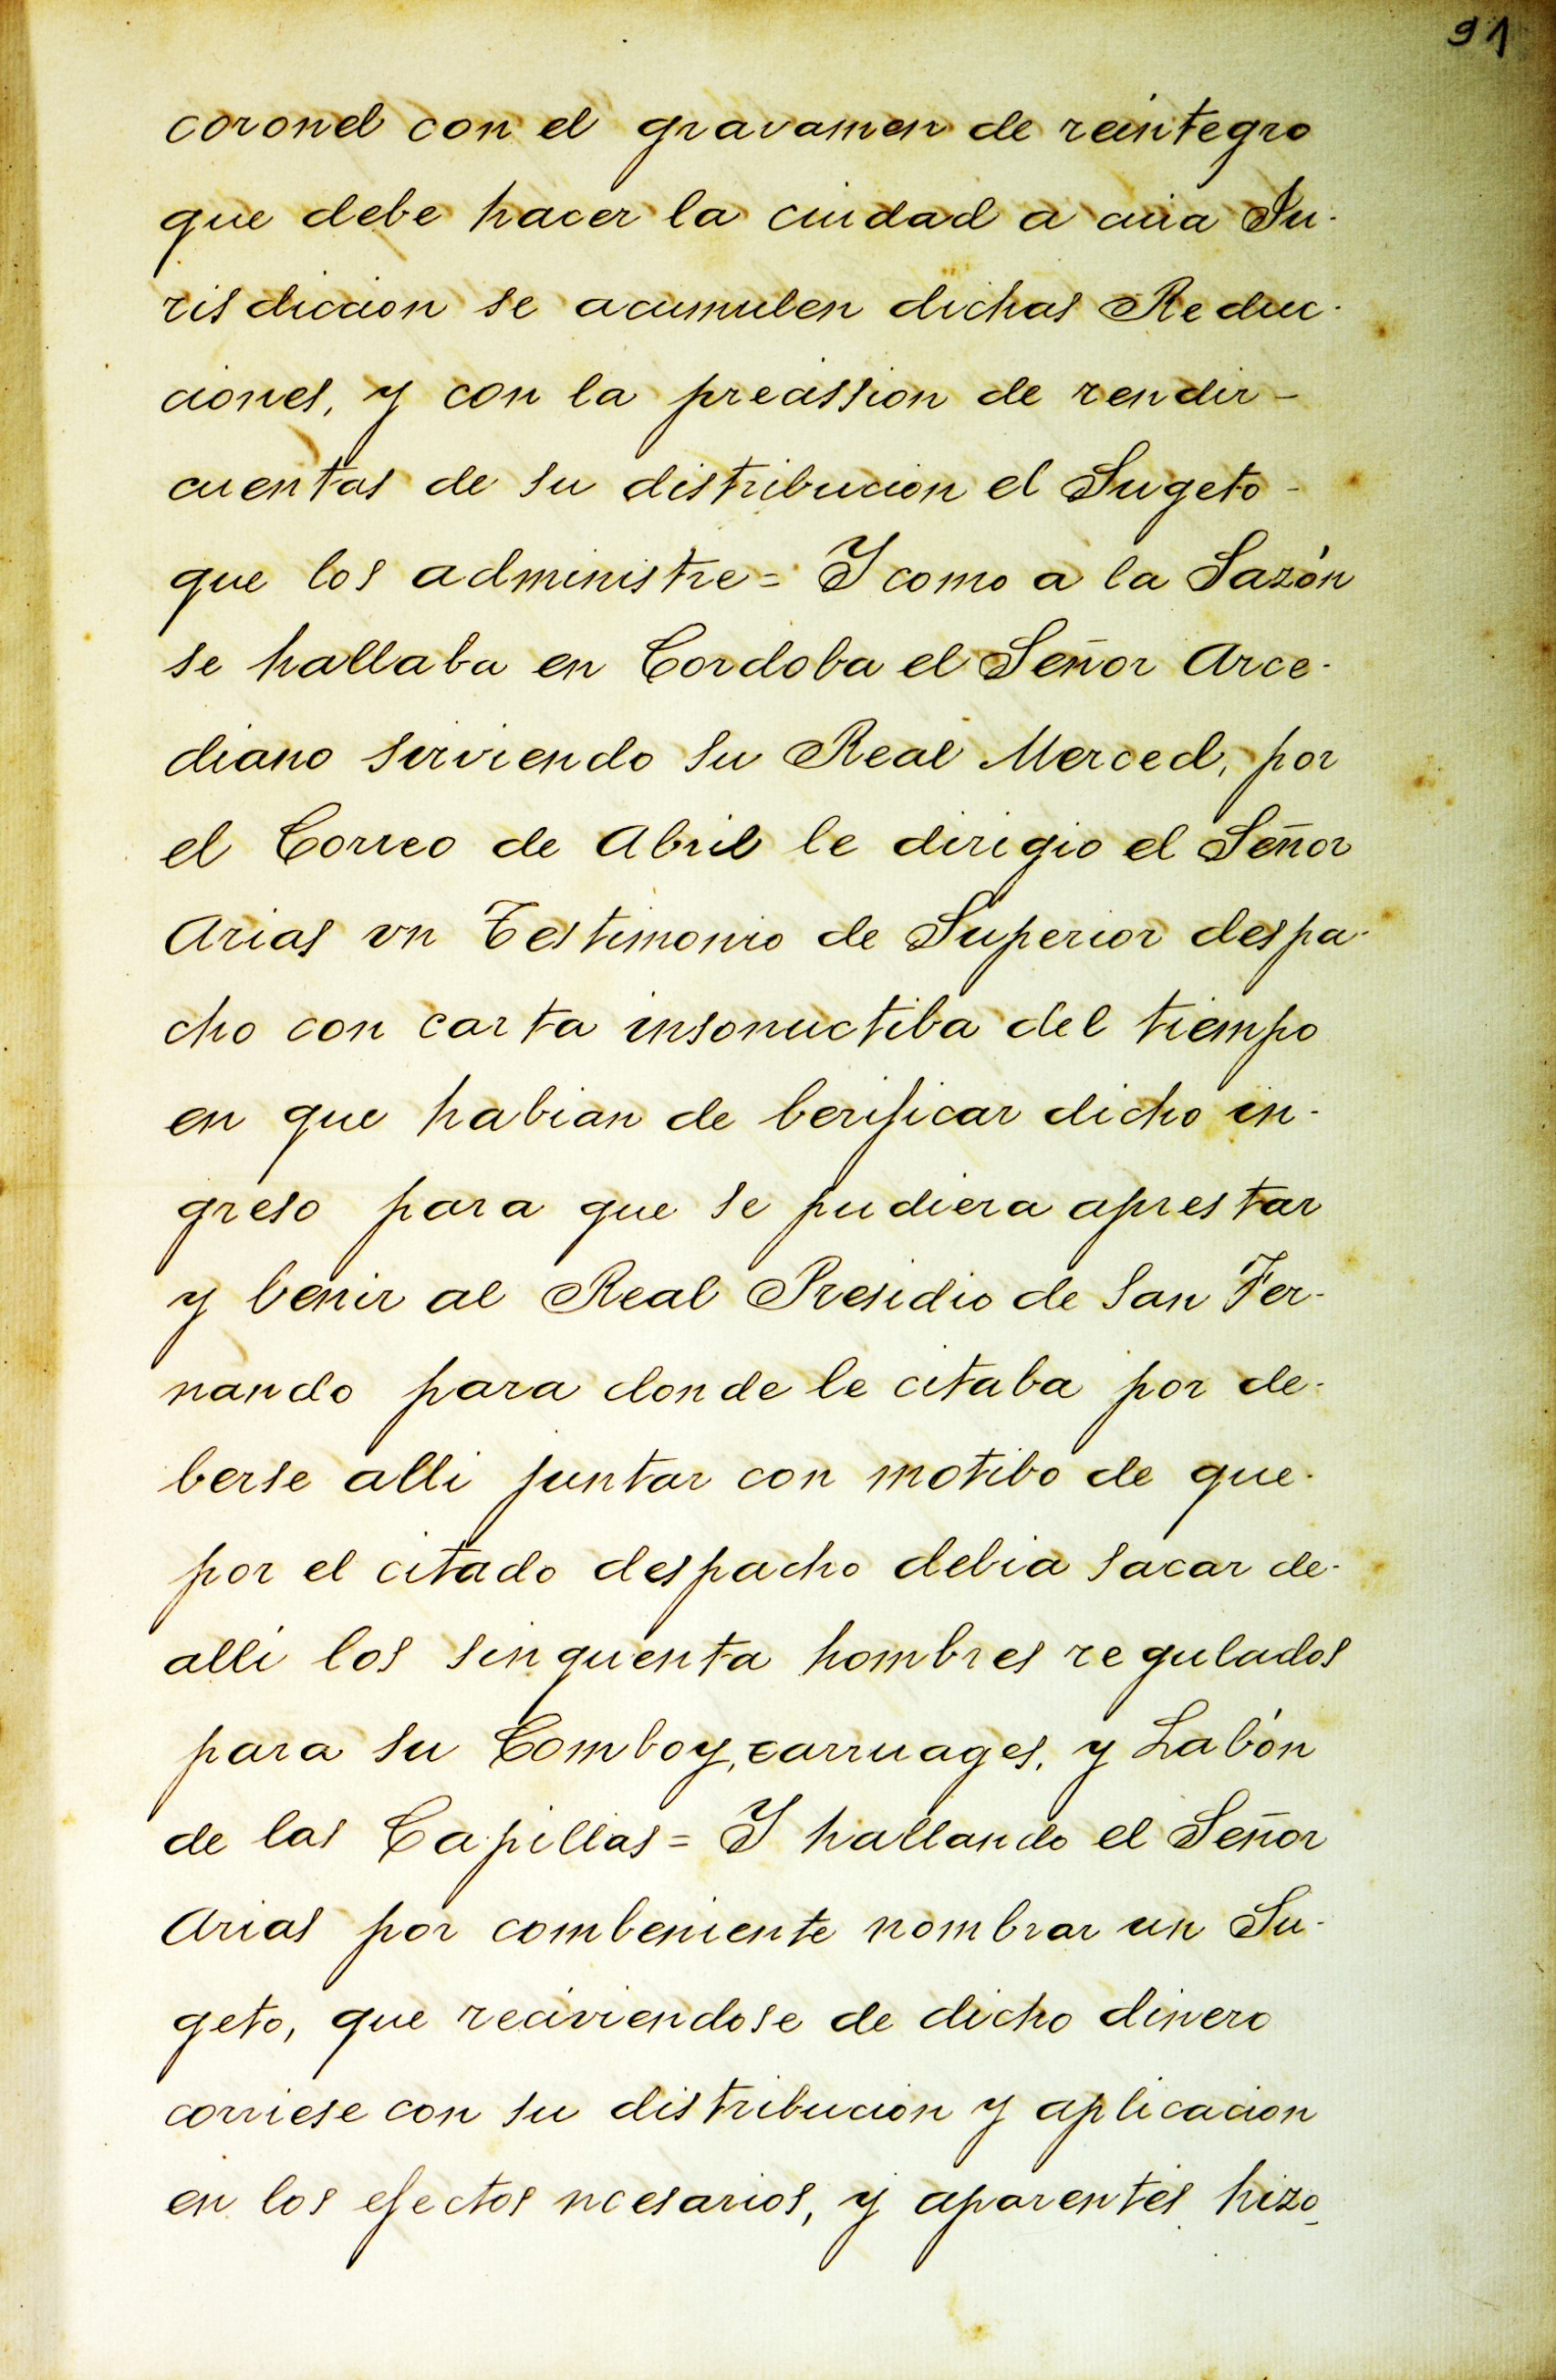 91
coronel con el gravamen de reintegro
que debe hacer la ciudad a cuia Ju-
risdiccion se acumulen dichas Reduc-
ciones, y con la precission de rendir-
cuentas de su distribucion el Sugeto-
que los administre= Y como a la Sazón
se hallaba en Cordoba el Señor Arce-
diano sirviendo su Real Merced, por
el Correo de Abril le dirigio el Señor
Arias vn Testimonio de Superior despa-
cho con carta insonuctiba del tiempo
en que habian de berificar dicho in-
greso para que se pudiera aprestar
y benir al Real Presidio de San Fer-
nando para donde le citaba por de-
berse alli juntar con motibo de que-
por el citado despacho debia sacar de-
alli los sinquenta hombres regulados
para su Comboy, carruages, y Labón
de las Capillas= Y hallando el Señor
Arias por combeniente nombrar un Su-
geto, que reciviendose de dicho dinero
corriese con su distribucion y aplicacion
en los efectos ncesarios, y aparentes hizo